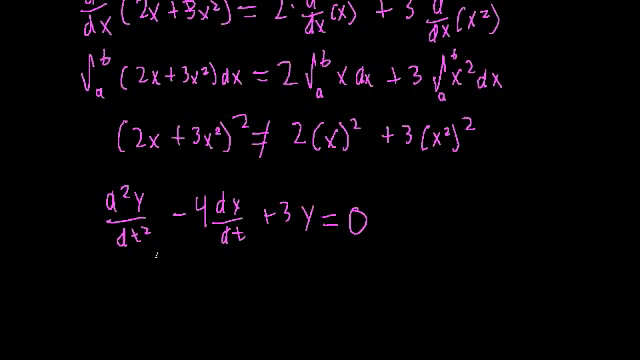 d/dx (2x+3x²) = 2 · d/dx (x) + 3 d/dx (x²)
∫ₐᵇ (2x+3x²)dx = 2 ∫ₐᵇ x dx + 3 ∫ₐᵇ x² dx
(2x+3x²)² ≠ 2(x)² + 3(x²)²
d²y/dt² - 4 dx/dt + 3y = 0